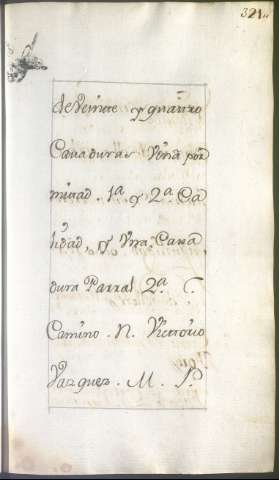 321
de Veinte y quatro
Cavaduras Viña por
mitad. 1ª y 2ª Ca
lidad, y Una Cava
dura Parral 2ª. C.
Camino. N. Victorio
Vazquez. M. P.